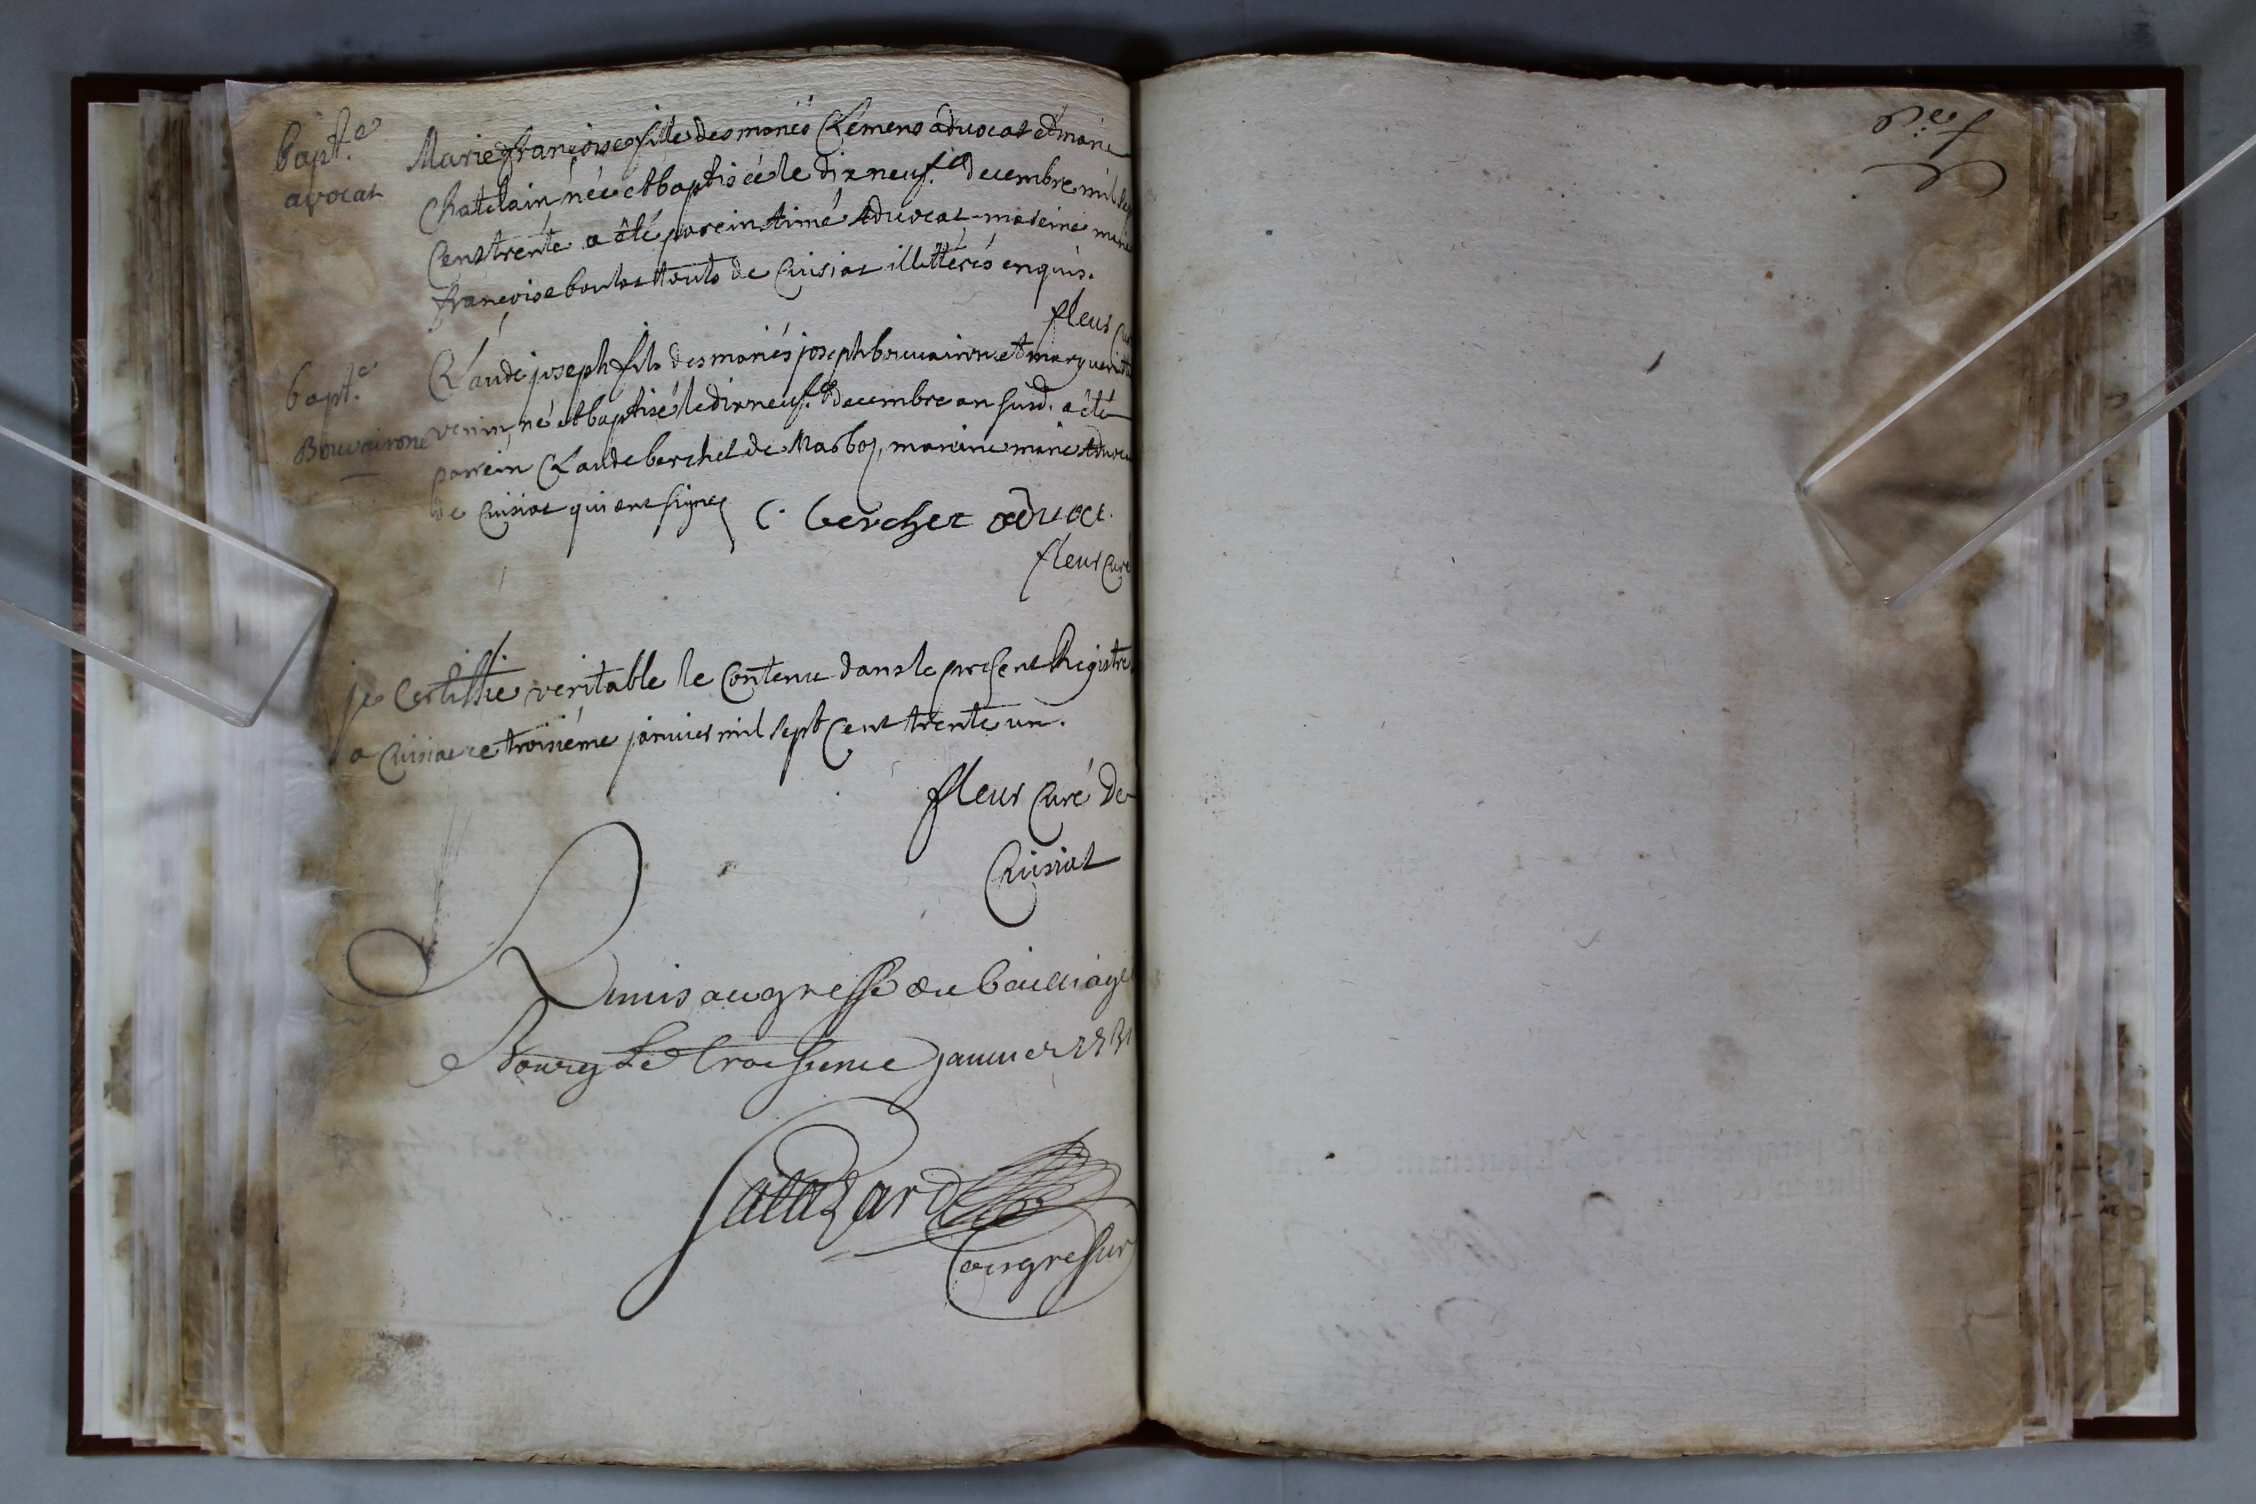 bapt.e
avocat
Marie françoise fille des mariés Clemens advocat et marie
Chatelain née et baptisée le dix neuf.e decembre mil sept
Cent trente a été parein Aimé Advocat mareine marie
françoise boulat touts de Cuisiat illittérés enquis.
fleur curé
bapt.e
Bouvairone
Claude joseph fils des mariés joseph bouvairon et marguerite
venin, né et baptisé le dix neuf.e decembre an susd. a été
parrein Claude berchet de Marboz, mareine marie Advocat
de Cuisiat qui ont signez C. berchet advoct.
fleur curé
je Certiffie veritable le Contenu dans le present Registre
a Cuisiat ce troisiéme janvier mil sept Cent trente un.
fleur Curé de
Cuisiat
Remis au greffe du bailliage
Bourg Le troisieme janvier 1731